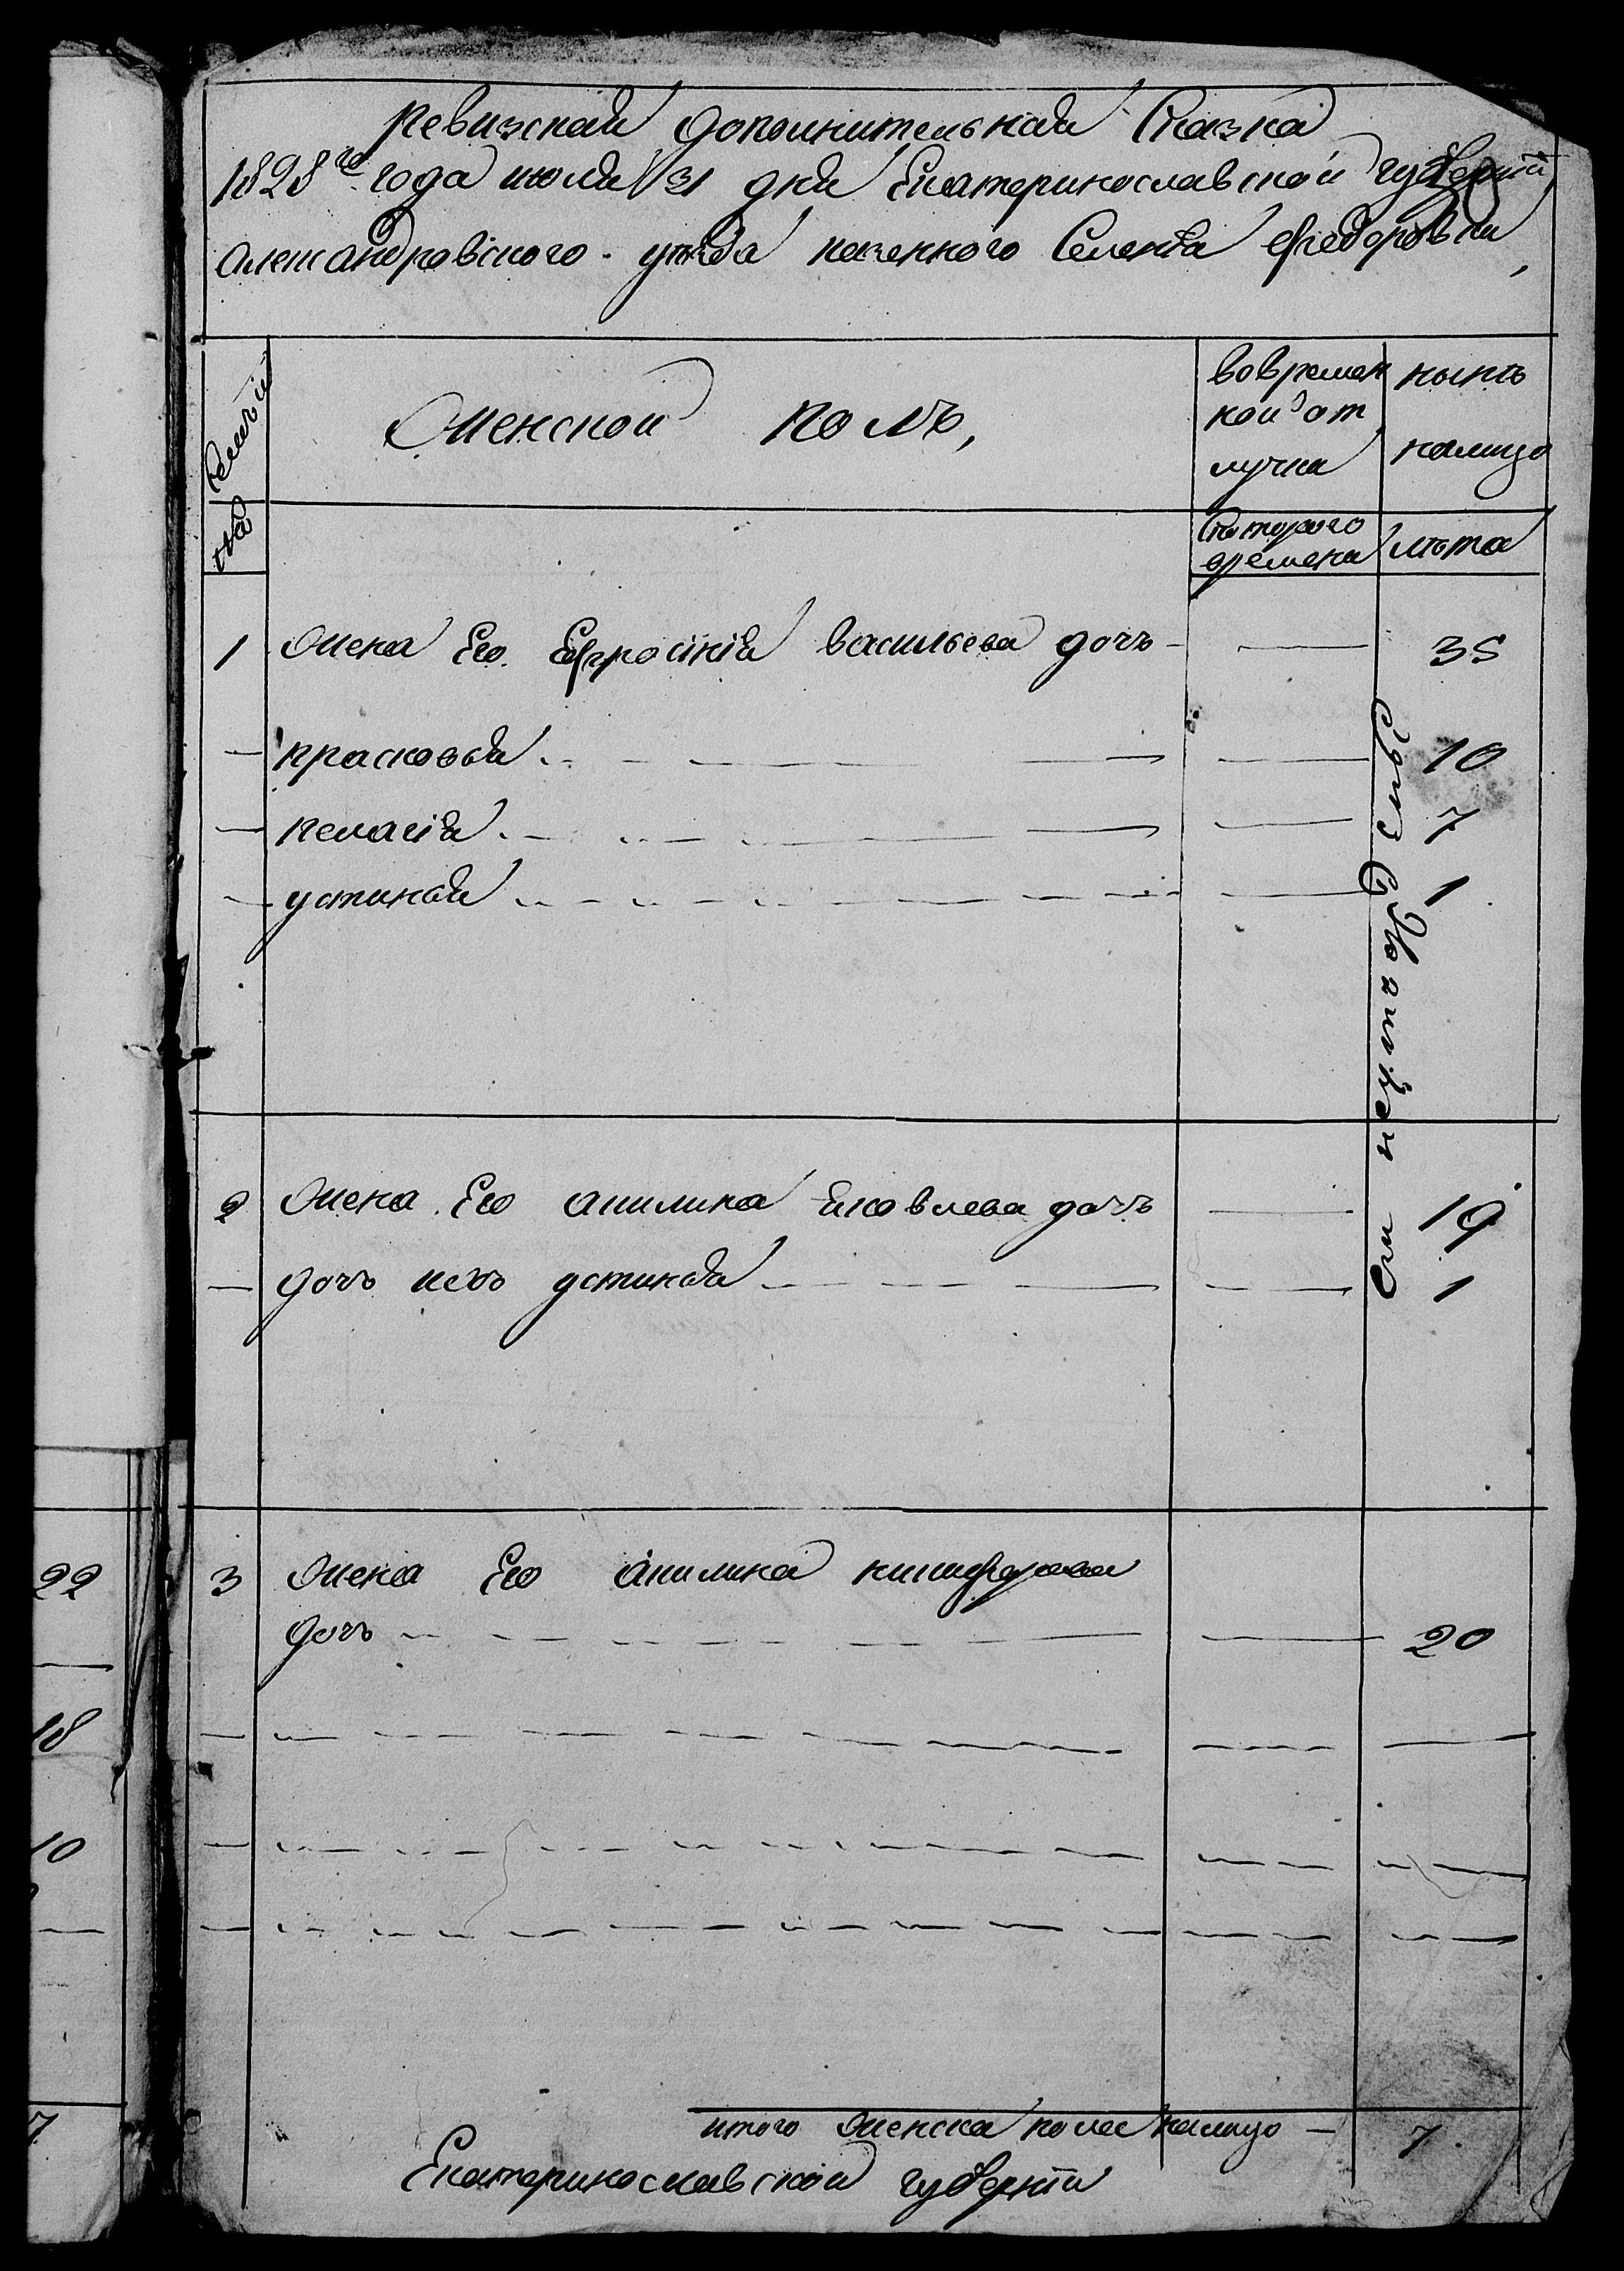 ревизская дополнительная Сказка
1828го года июля 31 дня Екатеринославской губернии
Александровского уезда казенного Селения Федоровки,
Семьи
Женской полъ,
вовремен
ной от
лучке
нынѣ
налицо
Скоторого
времени
лѣта
1 Жена Его Ефросинія васильева дочь — — 35
— прасковья — — 10
— пелагія — — 7
— устинья — — 1
2 Жена Его акилина Яковлева дочъ — 19
— дочъ ихъ устинья — — 1
3 Жена Его Акилина никифорова
дочъ — — 20
итого женска пола налицо — 7
Екатеринославской губерніи
22
18
10
7